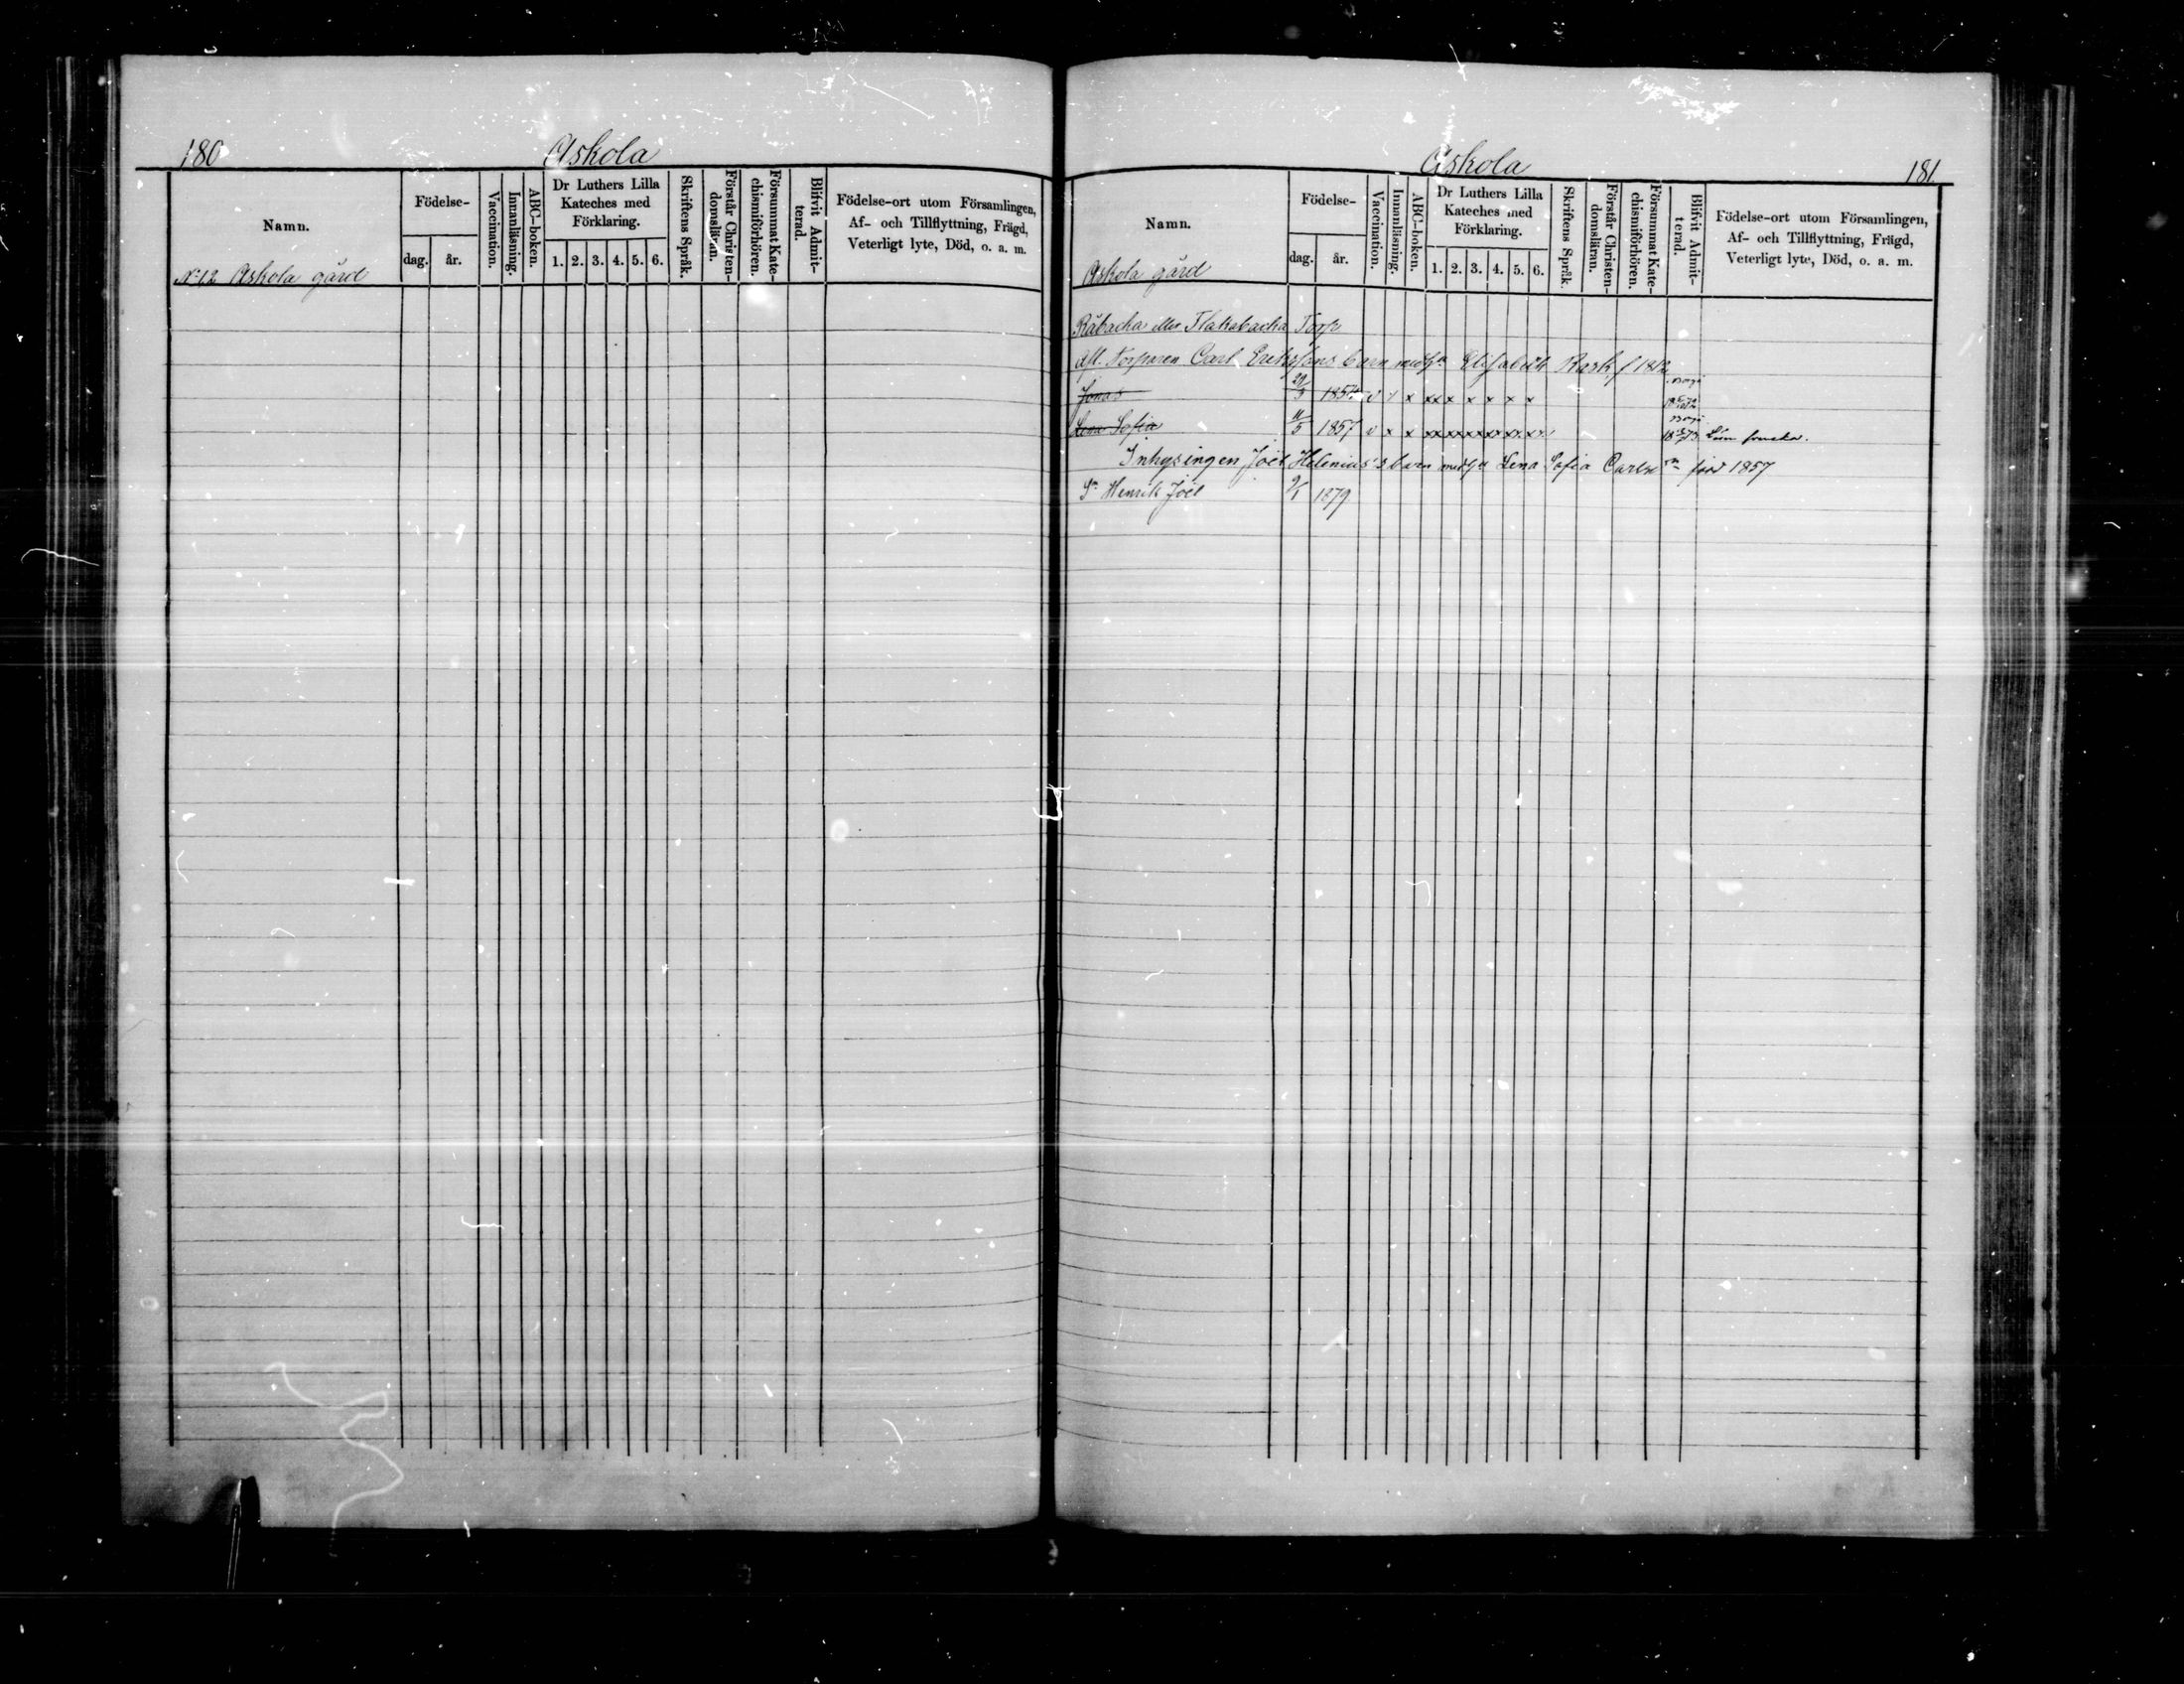 180
Askola
Namn.
Födelse-
dag.
år.
Vaccination.
Innanläsning.
ABC-boken.
Dr Luthers Lilla
Kateches med
Förklaring.
1. 2. 3. 4. 5. 6.
Skriftens Språk.
Förstår Christen-
domsläran.
Försummat Kate-
chismiförhören.
Blifvit Admit-
terad.
Födelse-ort utom Församlingen,
Af- och Tillflyttning, Frägd,
Veterligt lyte, Död, o. a. m.
No 12 Askola gård
Askola
181
Namn.
Födelse-
dag.
år.
Vaccination.
Innanläsning.
ABC-boken.
Dr Luthers Lilla
Kateches med
Förklaring.
1. 2. 3. 4. 5. 6.
Skriftens Språk.
Förstår Christen-
domsläran.
Försummat Kate-
chismiförhören.
Blifvit Admit-
terad.
Födelse-ort utom Församlingen,
Af- och Tillflyttning, Frägd,
Veterligt lyte, Död, o. a. m.
Askola gård
Råbacka eller Flakabacka Torp
Afl. Torparen Carl Erikssons barn med Elisabeth Rask f 1812
Jonas 29/3 1854 v x x xx x x x x x
Lena Sofia 11/5 1857 v x x
Inhysingen Joël Helenius's barn med Lena Sofia Carls född 1857
Sn Henrik Joël 9/1 1879